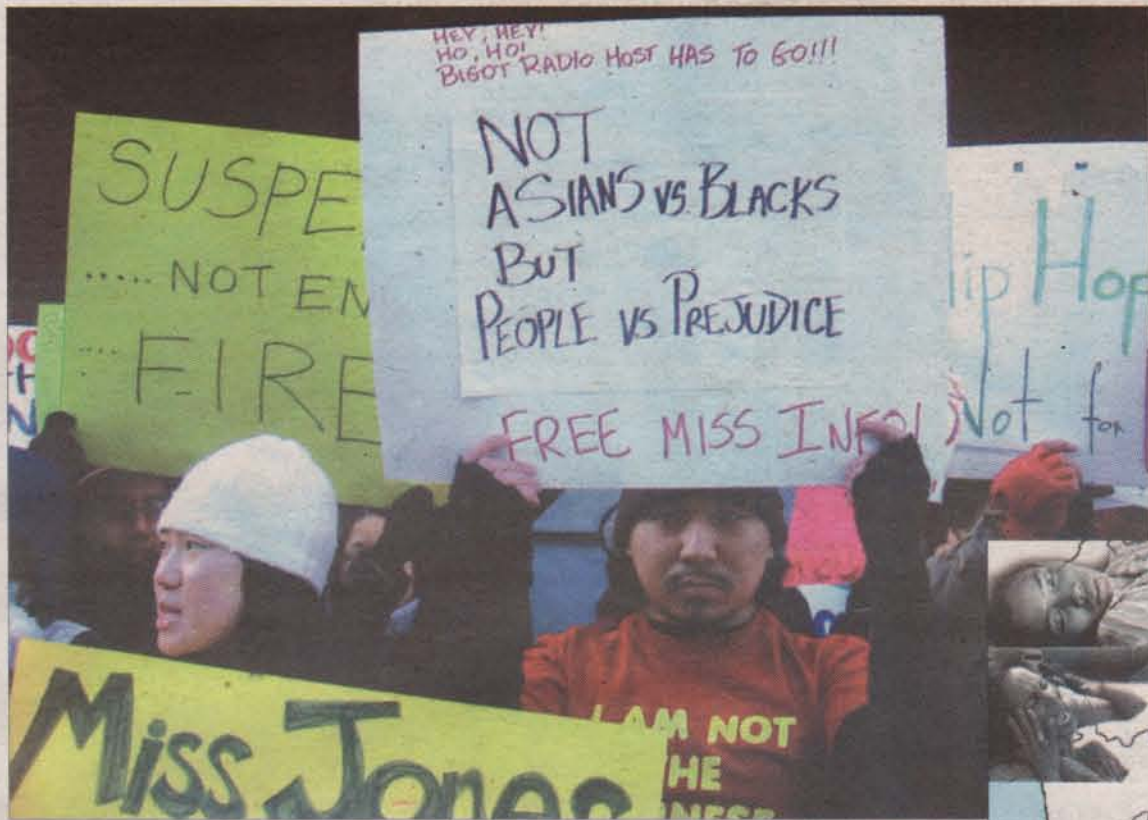 HEY, HEY!
HO, HO!
BIGOT RADIO HOST HAS TO GO!!!
NOT
ASIANS VS. BLACKS
BUT
PEOPLE VS PREJUDICE
FREE MISS INFO!
SUSPE
..... NOT EN
.... FIRE
Hop
Not for
Miss Jones
I AM NOT